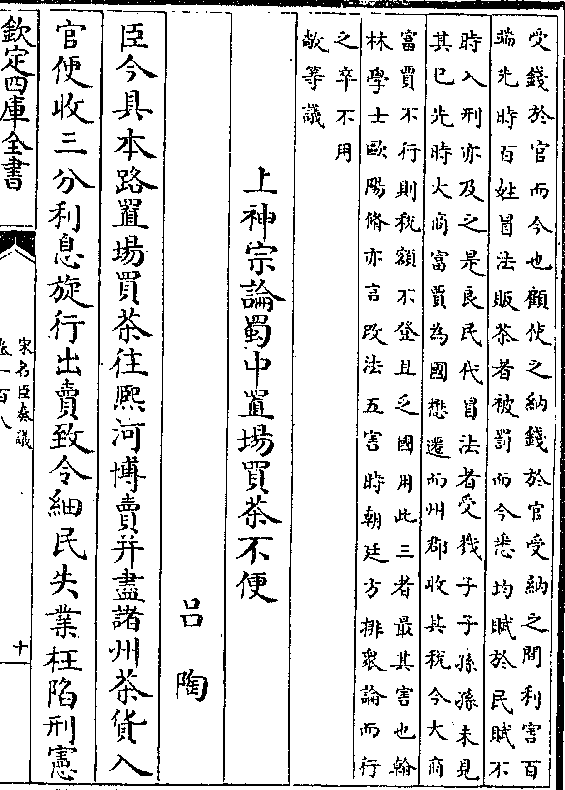 受錢於官而今也顧使之納錢於官受納之間利害百
端先時百姓冒法販茶者被罰而今悉均賦於民賦不
時入刑亦及之是良民代冒法者受戮子子孫孫未見
其已先時大商富賈為國懋遷而州郡收其稅今大商
富賈不行則稅額不登且乏國用此三者最其害也翰
林學士歐陽脩亦言改法五害時朝廷方排衆論而行
之卒不用
敞等議
上神宗論蜀中置場買茶不便
吕陶
臣今具本路置場買茶往熈河博賣并盡諸州茶貨入
官便收三分利息旋行出賣致令細民失業枉陷刑憲
欽定四庫全書
宋名臣奏議
卷一百八
十